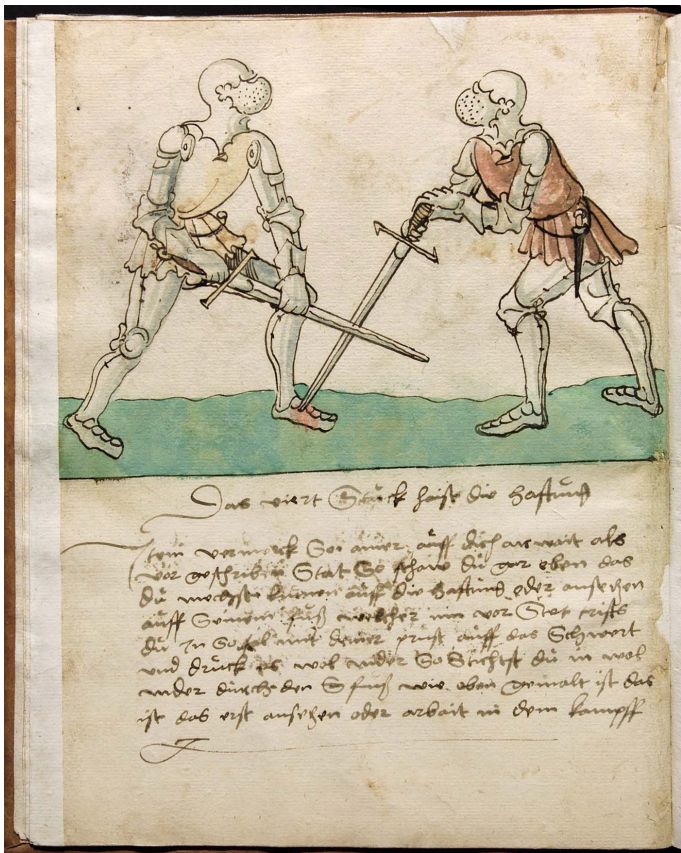 Das viert Stuck haist die hafftung
Item vermerck So ainer auff dich arwait als
vor geschriben Stat So schaw du gar eben das
du nechst kumen auff die hafftung oder anseczen
auff Seinem fuß welcher im vor Stet triffs
du In So fal mit deiner prust auff das Schwert
und druck es wol nider So Stichst du in wol
nider durch den fuß wie oben gemalt ist das
ist das erst anseczen oder arbait in dem kampff